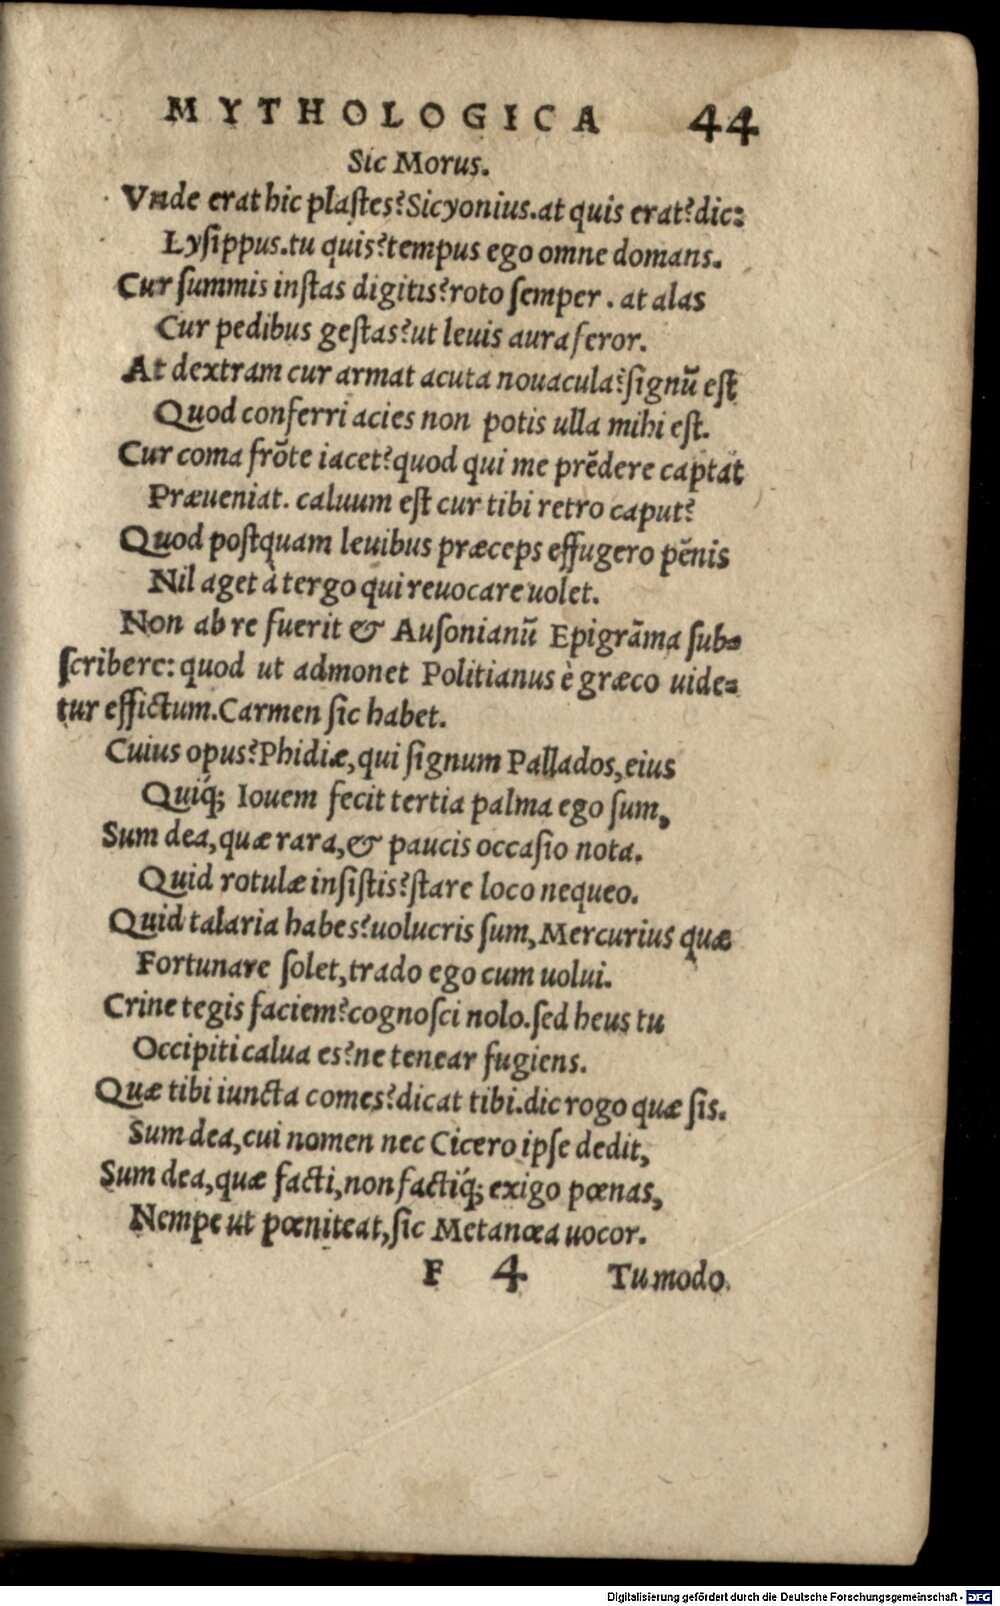 MYTHOLOGICA 44
Sic Morus.
Vnde erat hic plaſtes? Sicyonius. at quis erat? dic:
Lyſippus. tu quis? tempus ego omne domans.
Cur ſummis inſtas digitis? roto ſemper. at alas
Cur pedibus geſtas? ut leuis aura feror.
At dextram cur armat acuta nouacula? ſignū eſt
Quod conferri acies non potis ulla mihi eſt.
Cur coma frōte iacet? quod qui me prēdere captat
Præueniat. caluum eſt cur tibi retro caput?
Quod poſtquam leuibus præceps effugero pēnis
Nil aget à tergo qui reuocare uolet.
Non ab re fuerit & Auſonianū Epigrāma ſub=
ſcribere: quod ut admonet Politianus è græco uide=
tur effictum. Carmen ſic habet.
Cuius opus? Phidiæ, qui ſignum Pallados, eius
Quiq́; Iouem fecit tertia palma ego ſum,
Sum dea, quæ rara, & paucis occaſio nota.
Quid rotulæ inſiſtis? ſtare loco nequeo.
Quid talaria habes? uolucris ſum, Mercurius quæ
Fortunare ſolet, trado ego cum uolui.
Crine tegis faciem? cognoſci nolo. ſed heus tu
Occipiti calua es? ne tenear fugiens.
Quæ tibi iuncta comes? dicat tibi. dic rogo quæ ſis.
Sum dea, cui nomen nec Cicero ipſe dedit,
Sum dea, quæ facti, non factiq́; exigo pœnas,
Nempe ut pœniteat, ſic Metanœa uocor.
F 4 Tu modo
Digitalisierung gefördert durch die Deutsche Forschungsgemeinschaft - DFG